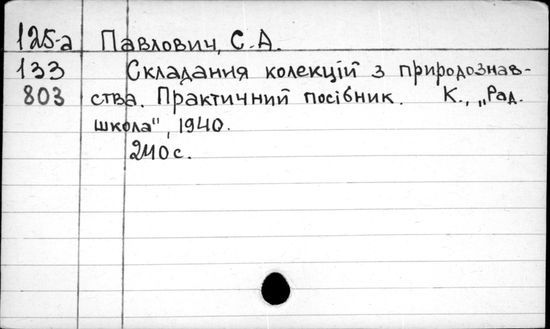 125-а Павлович, С.А.
133 Складання колекцій з природознав-
803 ства. Практичний посібник. К., „Рад.
школа", 1940.
240 с.